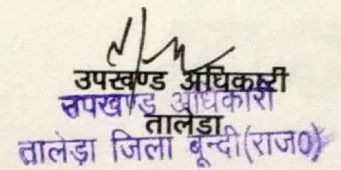 उपखण्ड अधिकारी
उपखण्ड अधिकारी
तालेडा
तालेड़ा जिला बून्दी(राज०)